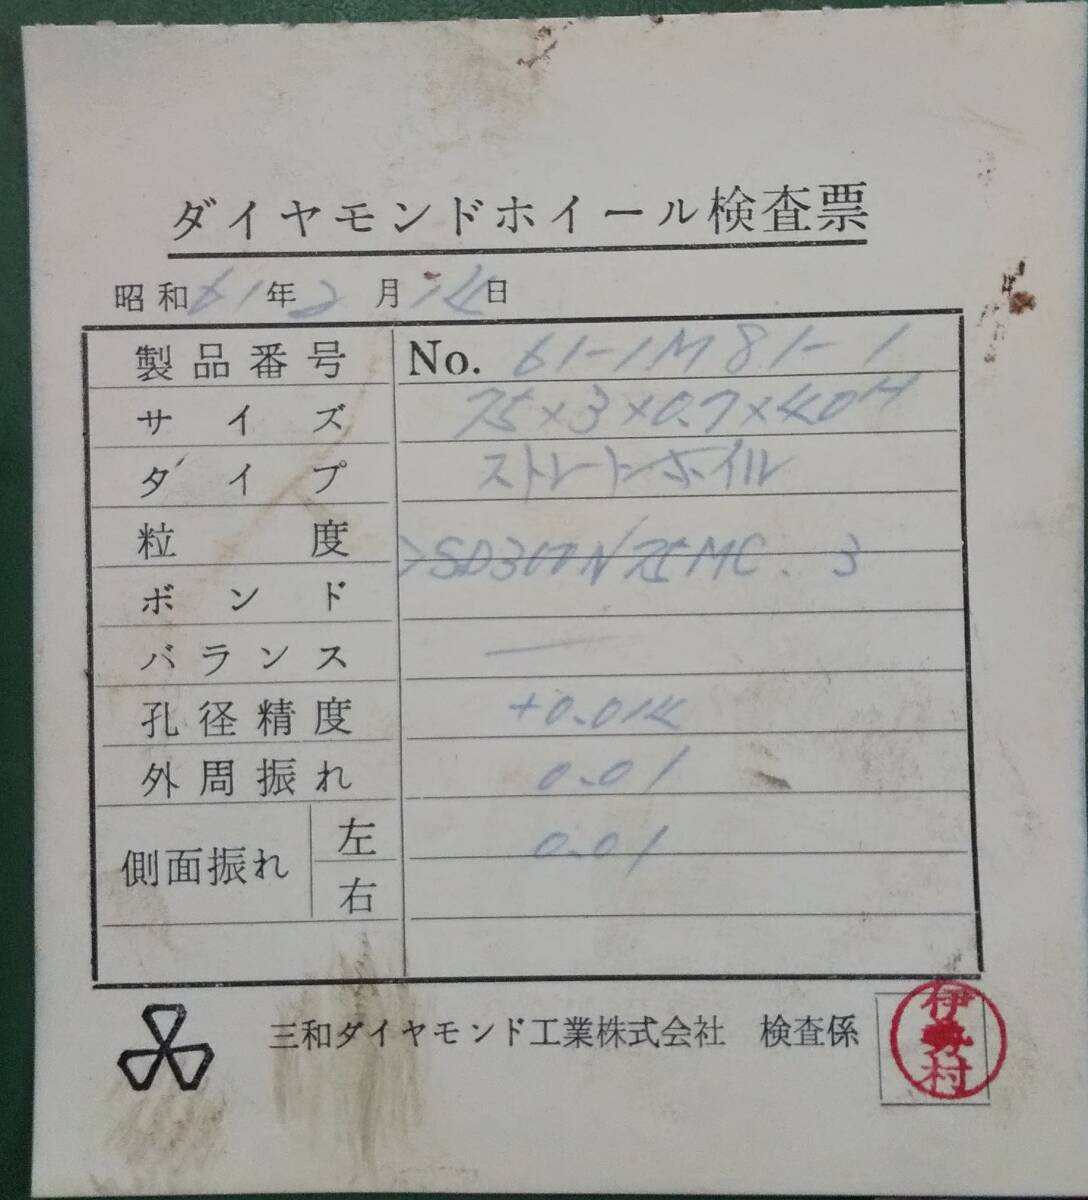 ダイヤモンドホイール検査票
昭和61年2月14日
製品番号 No. 61-1M81-1
サイズ 75×3×0.7×40H
タイプ ストレートホイル
粒度 >SD300N75MC. 3
ボンド
バランス —
孔径精度 +0.014
外周振れ 0.01
側面振れ 左 0.01
右
三和ダイヤモンド工業株式会社 検査係
伊勢村